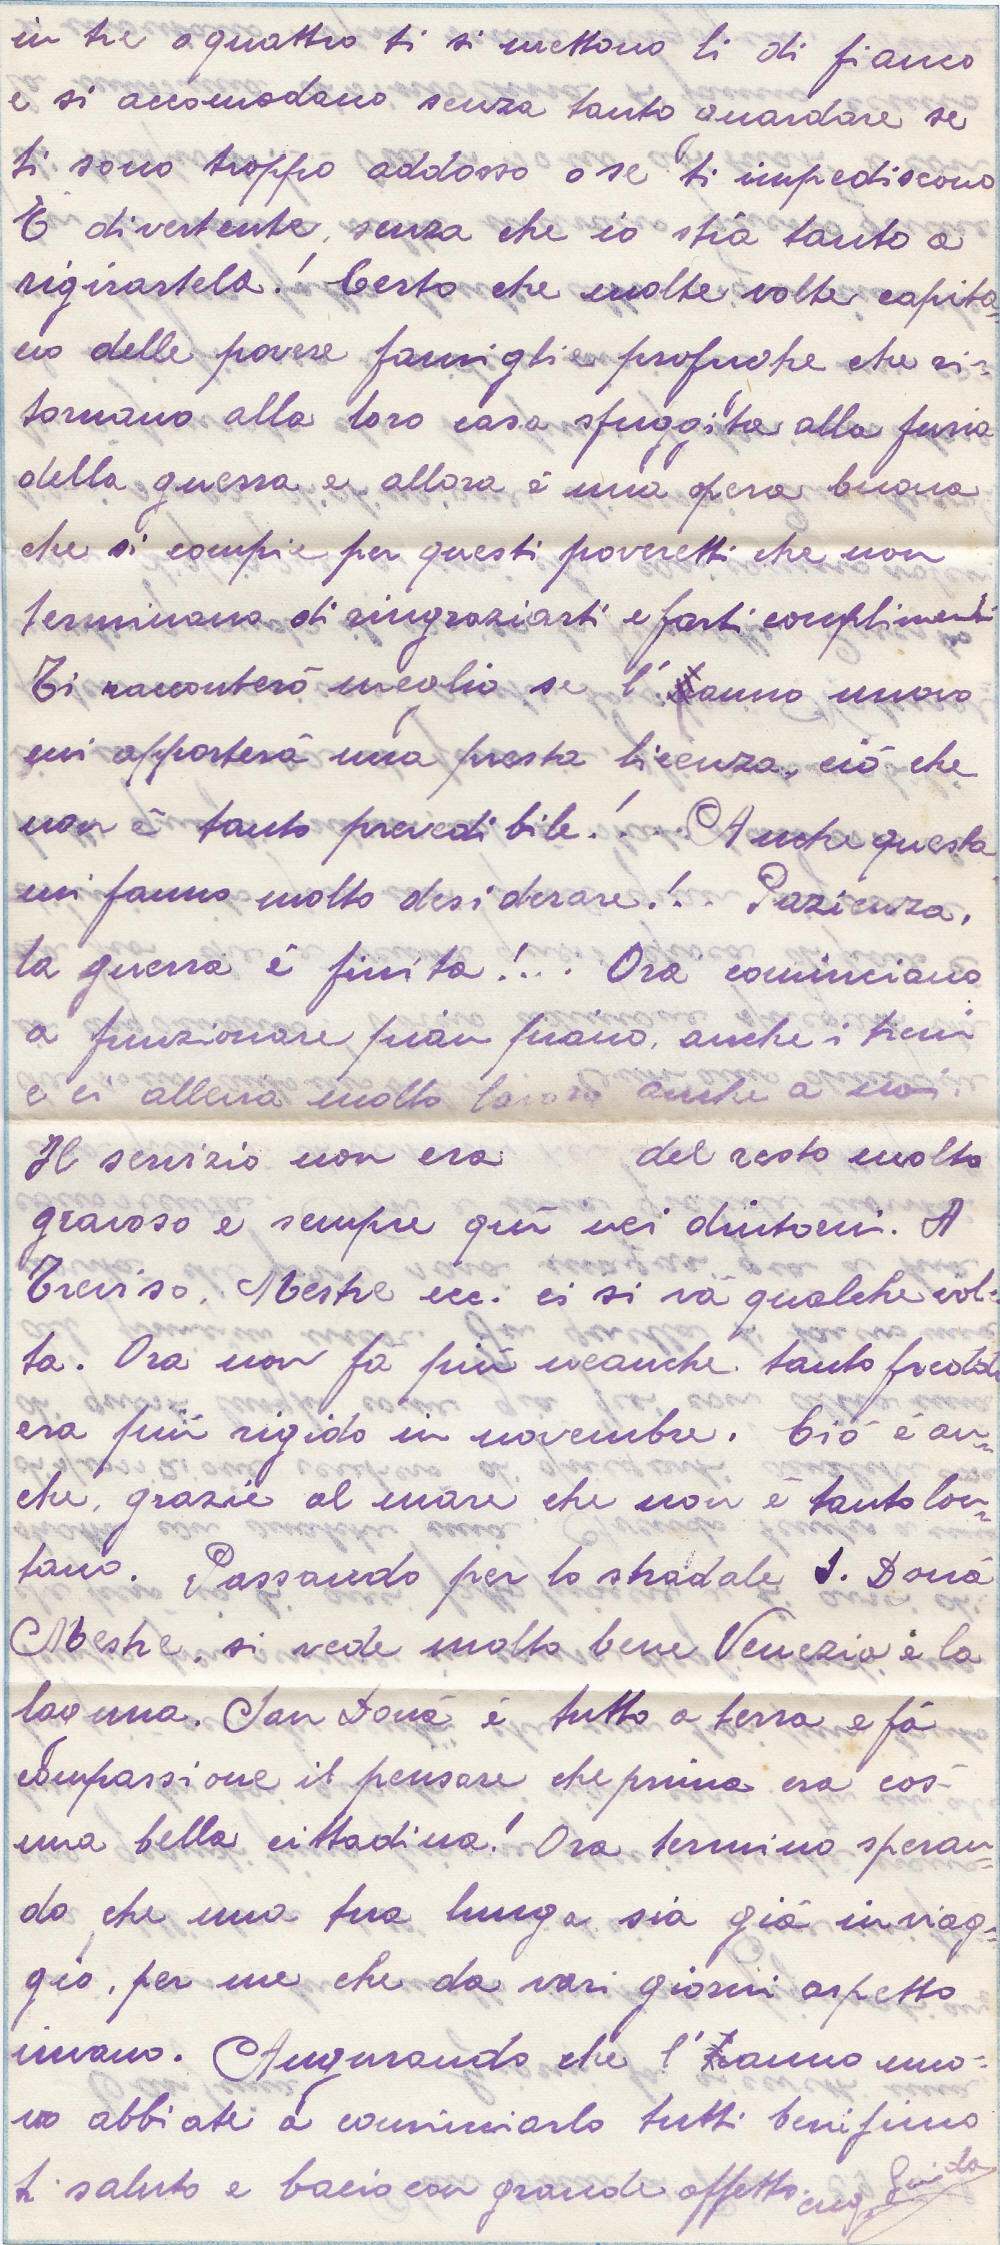 in tre o quattro ti si mettono li di fianco
e si accomodano senza tanto guardare se
ti sono troppo addosso o se ti impediscono
È divertente, senza che io stia tanto a
rigirartela! Certo che molte volte capita=
no delle povere famiglie profughe che ri=
tornano alla loro casa sfuggita alla furia
della guerra e allora è una opera buona
che si compie per questi poveretti che non
terminano di ringraziarti e farti complimenti
Ti racconterò meglio se l'anno nuovo
mi apporterà una presta licenza, ciò che
non è tanto prevedibile!... Anche questa
mi fanno molto desiderare!.. Pazienza,
la guerra è finita!... Ora cominciano
a funzionare pian piano, anche i treni
e ci allevia molto lavoro anche a noi.
Il servizio non era del resto molto
gravoso e sempre quì nei dintorni. A
Treviso, Mestre ecc. ci si và qualche vol=
ta. Ora non fà più neanche tanto freddo
era più rigido in novembre. Ciò è an=
che, grazie al mare che non è tanto lon=
tano. Passando per lo stradale S. Donà
Mestre, si vede molto bene Venezia e la
laguna. San Donà è tutto a terra e fà
compassione il pensare che prima era cosi
una bella cittadina! Ora termino speran=
do che una tua lunga sia già in viag=
gio, per me che da vari giorni aspetto
invano. Augurando che l'anno nuo=
vo abbiate a cominciarlo tutti benissimo
ti saluto e bacio con grande affetto. cug. Guido